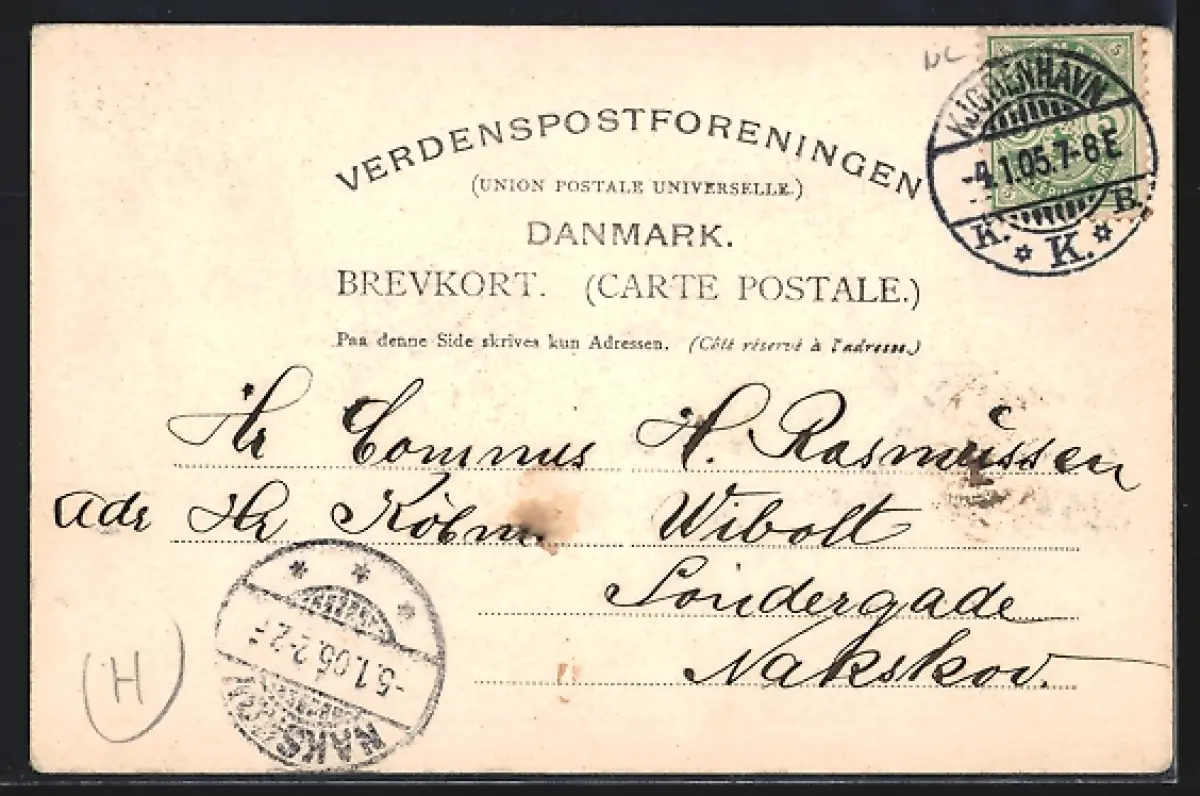 VERDENSPOSTFORENINGEN
(UNION POSTALE UNIVERSELLE.)
DANMARK.
BREVKORT. (CARTE POSTALE.)
Paa denne Side skrives kun Adressen. (Côté réservé à l'adresse.)
KJØBENHAVN
-4.1.05.7-8E
K. K. B.
Hr Commus H. Rasmussen
adr Hr Købm. Wibolt
Söndergade
Nakskov.
-5.1.05.2-2
NAKS
H